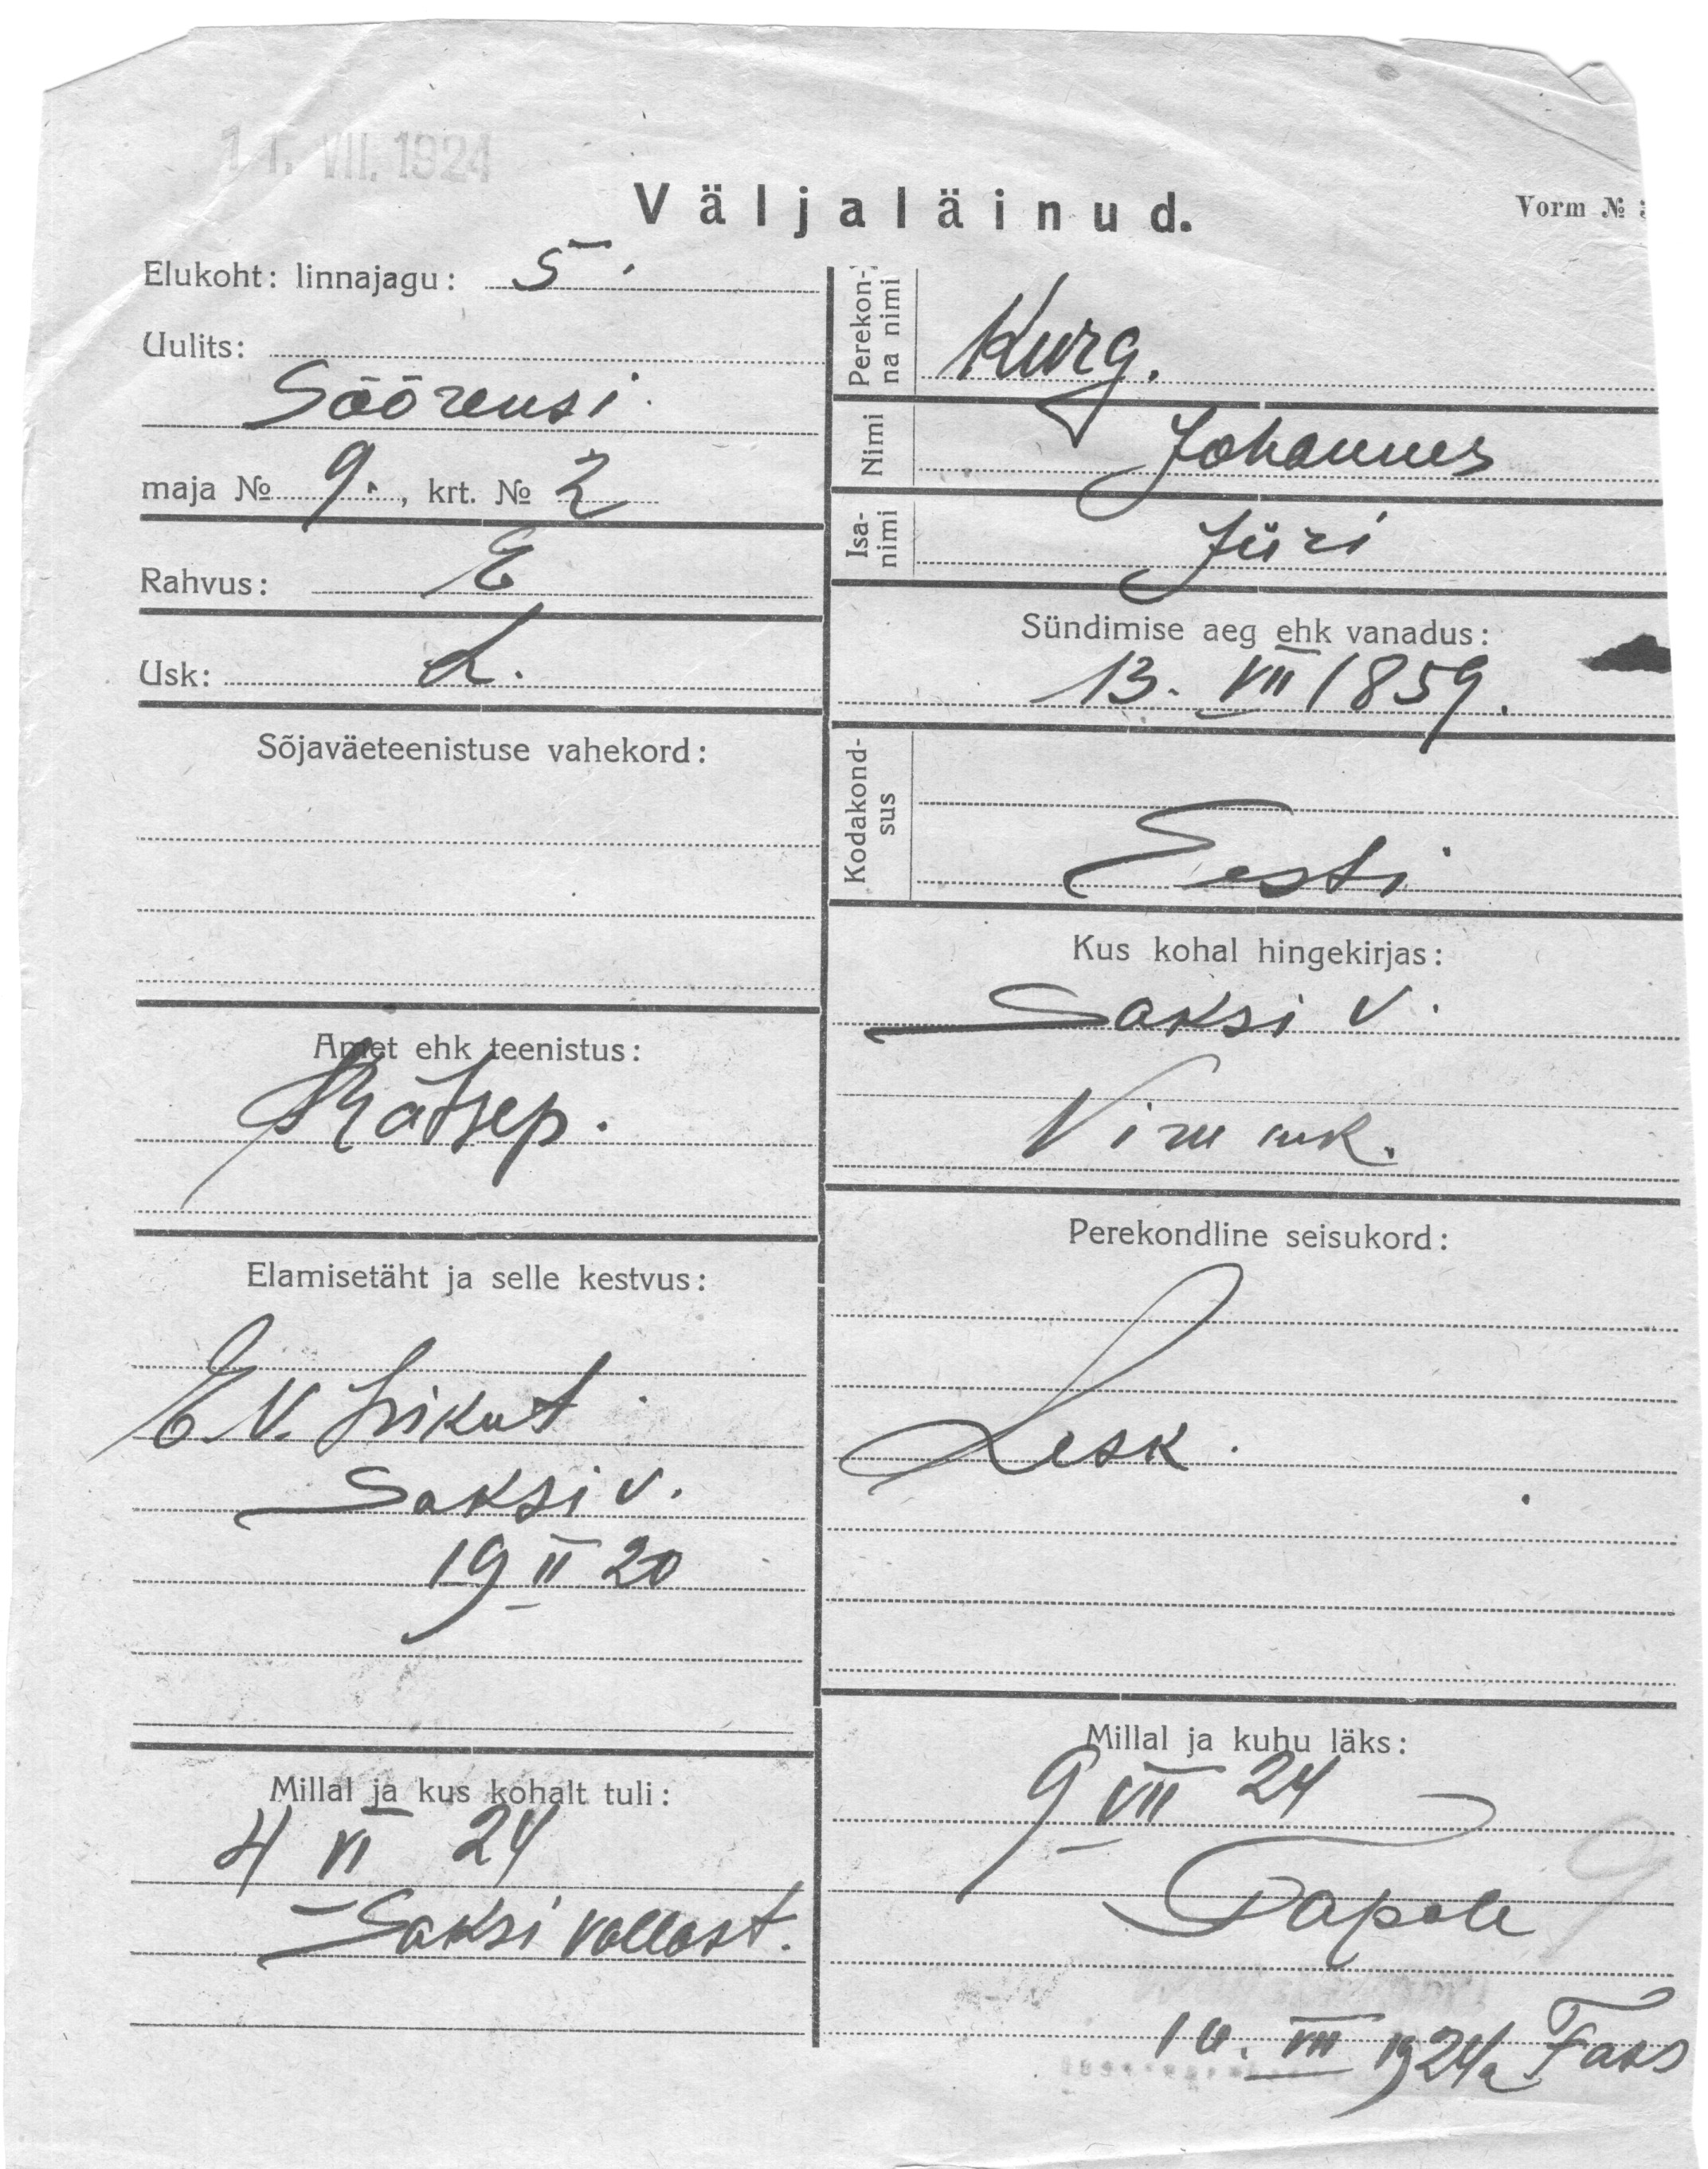 11. VII. 1924
Väljaläinud.
Vorm №
Elukoht: linnajagu: 5.
Uulits:
Söörensi.
maja № 9., krt. № 2
Rahvus: E
Usk: L.
Sõjaväeteenistuse vahekord:
Amet ehk teenistus:
Rätsep.
Elamisetäht ja selle kestvus:
E. V. Isikut.
Saksi v.
19 II 20
Millal ja kus kohalt tuli:
4 VI 24
Saksi vallast.
Perekonna nimi
Kurg.
Nimi
Johannes
Isa-
nimi
Jüri
Sündimise aeg ehk vanadus:
13. VII 1859.
Kodakond-
sus
Eesti
Kus kohal hingekirjas:
Saksi v.
Viru mk.
Perekondline seisukord:
Lesk.
Millal ja kuhu läks:
9 VII 24
Tapale
9
10. VII 1924a